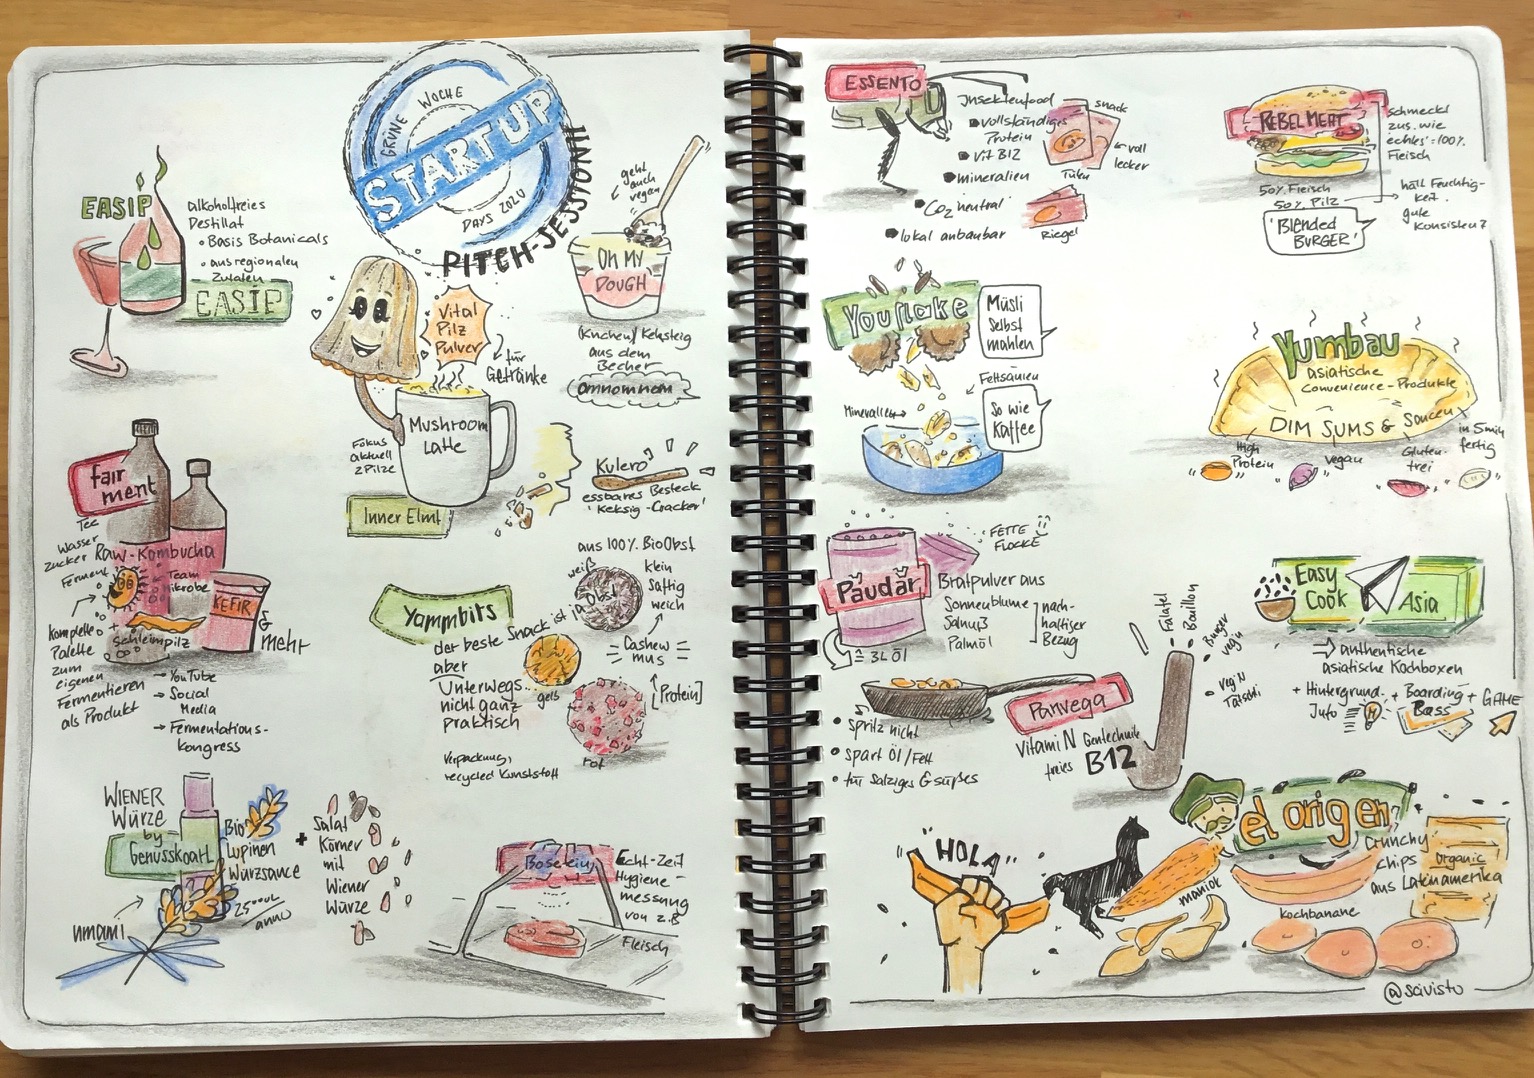 GRÜNE WOCHE
STARTUP
DAYS 2020
PITCH-SESSION!
EASIP
alkoholfreies
Destillat
• Basis Botanicals
• aus regionalen
Zutaten
EASIP
Vital
Pilz
Pulver
für
Getränke
Mushroom
Latte
Fokus
aktuell
2 Pilze
Inner Elmt
geht
auch
vegan
Oh My
DOUGH
(Kuchen)/Keksteig
aus dem
Becher
omnomnom
Kulero
essbares Besteck
'Keksig-Cracker'
fairment
Tee
Wasser
Zucker
Ferment
Raw-Kombucha
Team
KEFIR
& mehr
Schleimpilz
komplette
Palette
zum
eigenen
Fermentieren
als Produkt
→ YouTube
→ Social
Media
→ Fermentations-
kongress
Yammbits
der beste Snack ist ja Obst
aber
Unterwegs
nicht ganz
praktisch
Verpackung:
recycled Kunststoff
aus 100% BioObst
klein
saftig
weich
weiß
Cashew
mus
[Protein]
gelb
rot
WIENER
WÜRZE
by
Genusskoarl
Bio
Lupinen
Würzsauce
umami
+
Salat
Körner
mit
Wiener
Würze
Echt-Zeit
Hygiene-
messung
von z.B
Fleisch
ESSENTO
Insektenfood
• vollständiges
Protein
• vit B12
• mineralien
• CO2 neutral
• lokal anbaubar
snack
voll
lecker
Riegel
REBEL MEAT
schmeckt
zus. wie
echtes 100%
Fleisch
50% Fleisch
50% Pilz
hält Feuchtig-
keit
gute
Konsistenz
'Blended
BURGER'
Youflake
Müsli
selbst
mahlen
Fettsäuren
Mineralien
So wie
Kaffee
Yumbau
asiatische
Convenience-Produkte
DIM SUMS & Saucen
in 5 min
fertig
High
Protein
vegan
Gluten-
frei
Paudar
FETTE
FLOCKE
Bratpulver aus
Sonnenblume
Salnuß
Palmöl
nach-
haltiger
Bezug
= 3L Öl
• spritz nicht
• spart Öl/Fett
• für salziges & süßes
Panvega
VitamiN Gentechnik
freies B12
Falafel
Bouillon
Burger
vegin
Easy
Cook Asia
⇒ authentische
asiatische Kochboxen
+ Hintergrund-
Info
+ Boarding
Pass
+ GAME
"HOLA"
el origen
Crunchy
chips
aus Lateinamerika
Organic
maniok
Kochbanane
@scivisto